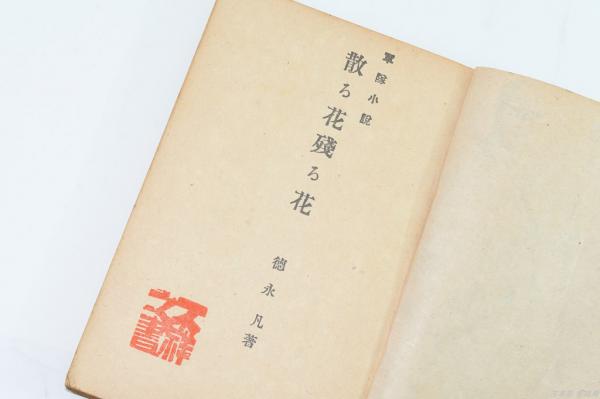 軍隊小說
散る花殘る花
德永凡著